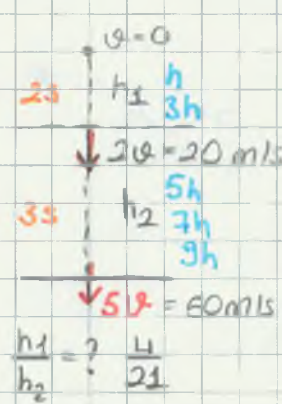 ϑ=0
2s h₁ h
3h
2ϑ = 20 m/s
5h
3s h₂ 7h
9h
5ϑ = 60m/s
h₁/h₂ = ? 4/21